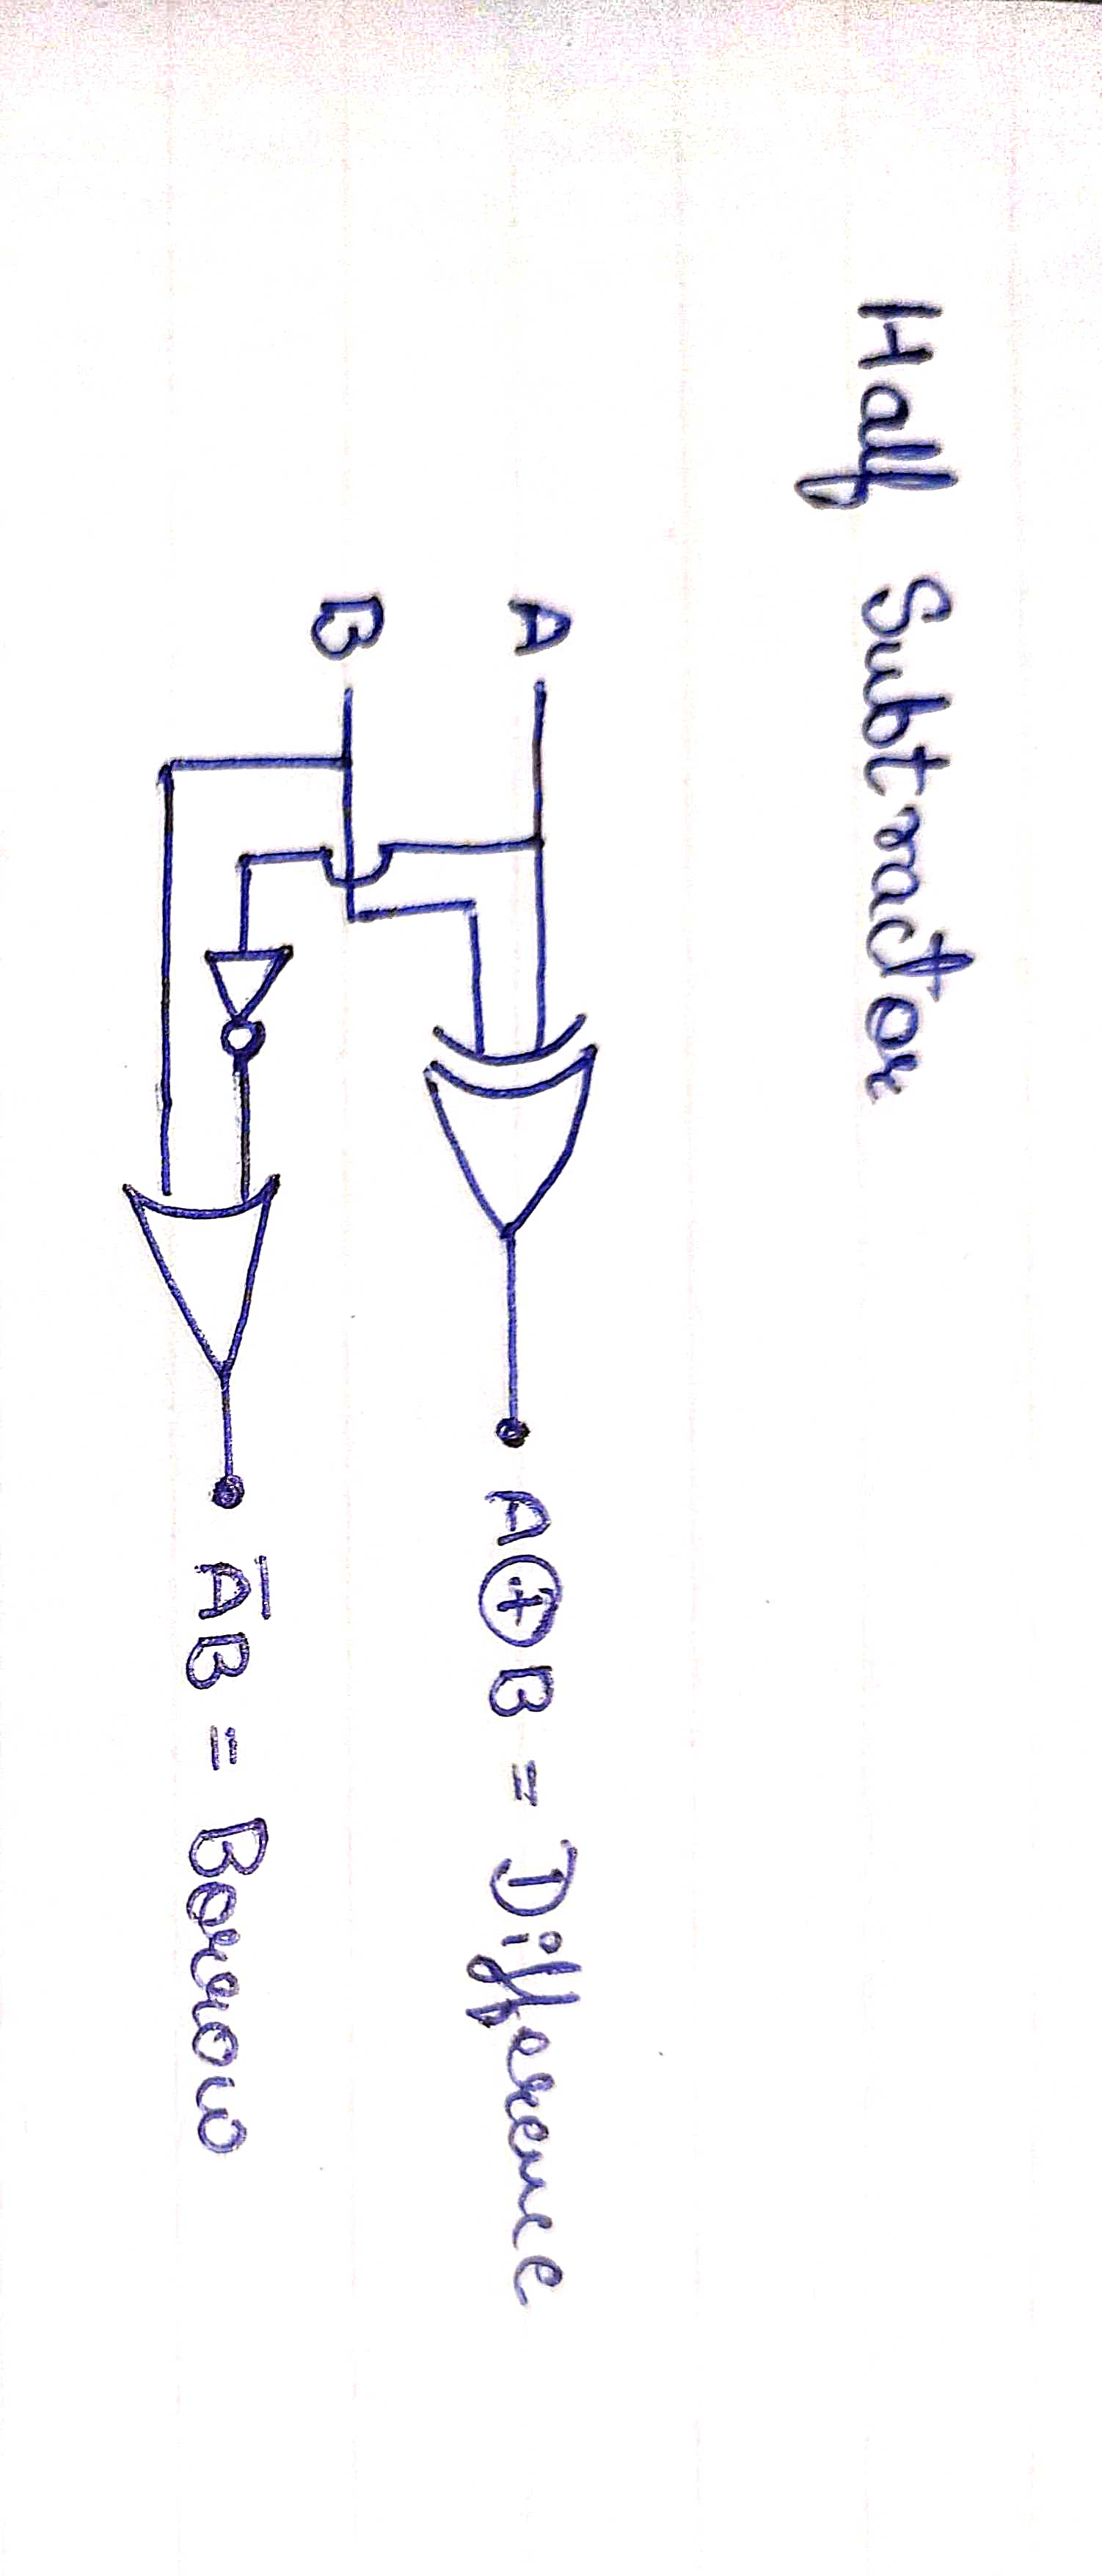 Half Subtractor
A
B
A ⊕ B = Difference
A̅B = Borrow